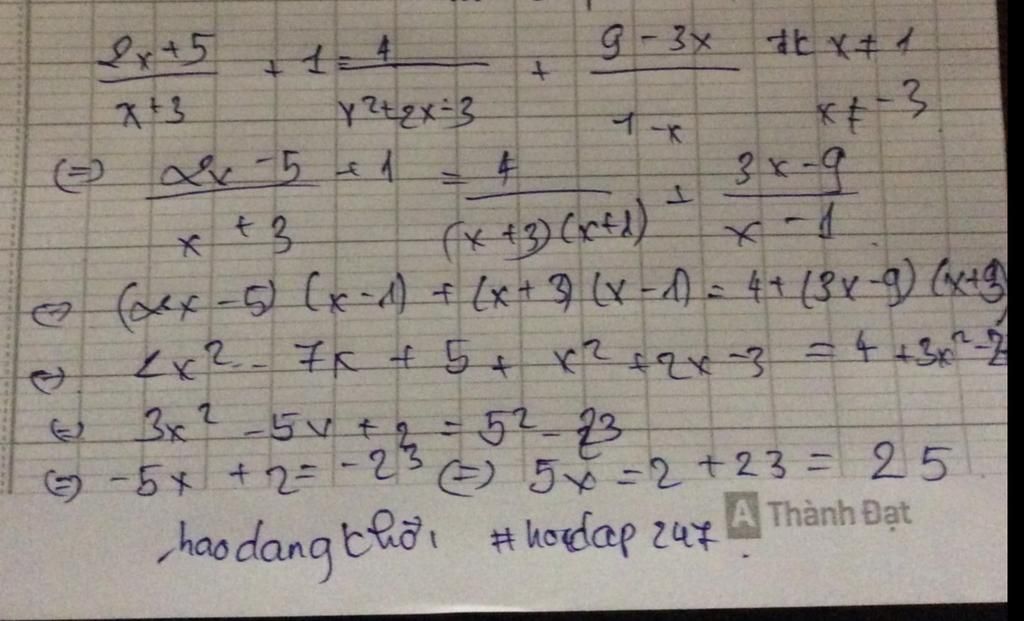 (2x+5)/(x+3) + 1 = 4/(x²+2x-3) + (9-3x)/(1-x) đk x ≠ 1
x ≠ -3
(=) (2x-5)/(x+3) + 1 = 4/((x+3)(x+1)) + (3x-9)/(x-1)
(=) (2x-5)(x-1) + (x+3)(x-1) = 4+(3x-9)(x+3)
(=) 2x² - 7x + 5 + x² + 2x - 3 = 4 + 3x² - 2
(=) 3x² - 5x + 2 = 5² - 23
(=) -5x + 2 = -23 (=) 5x = 2 + 23 = 25
A Thành Đạt
haodangkhởi #hoidap247